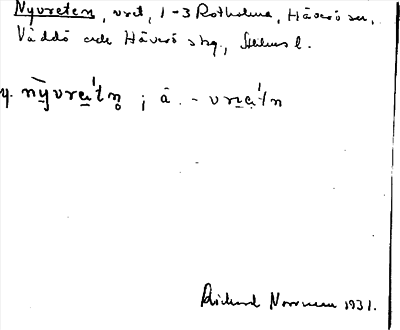 Nyvreten, vret, 1-3 Rotholma, Häverö sn,
Väddö och Häverö skg., Sthlms l.
y. nỳvrea̤'tn̥ ; ä. - vrea̤'tn
Rickard Norrman 1931.